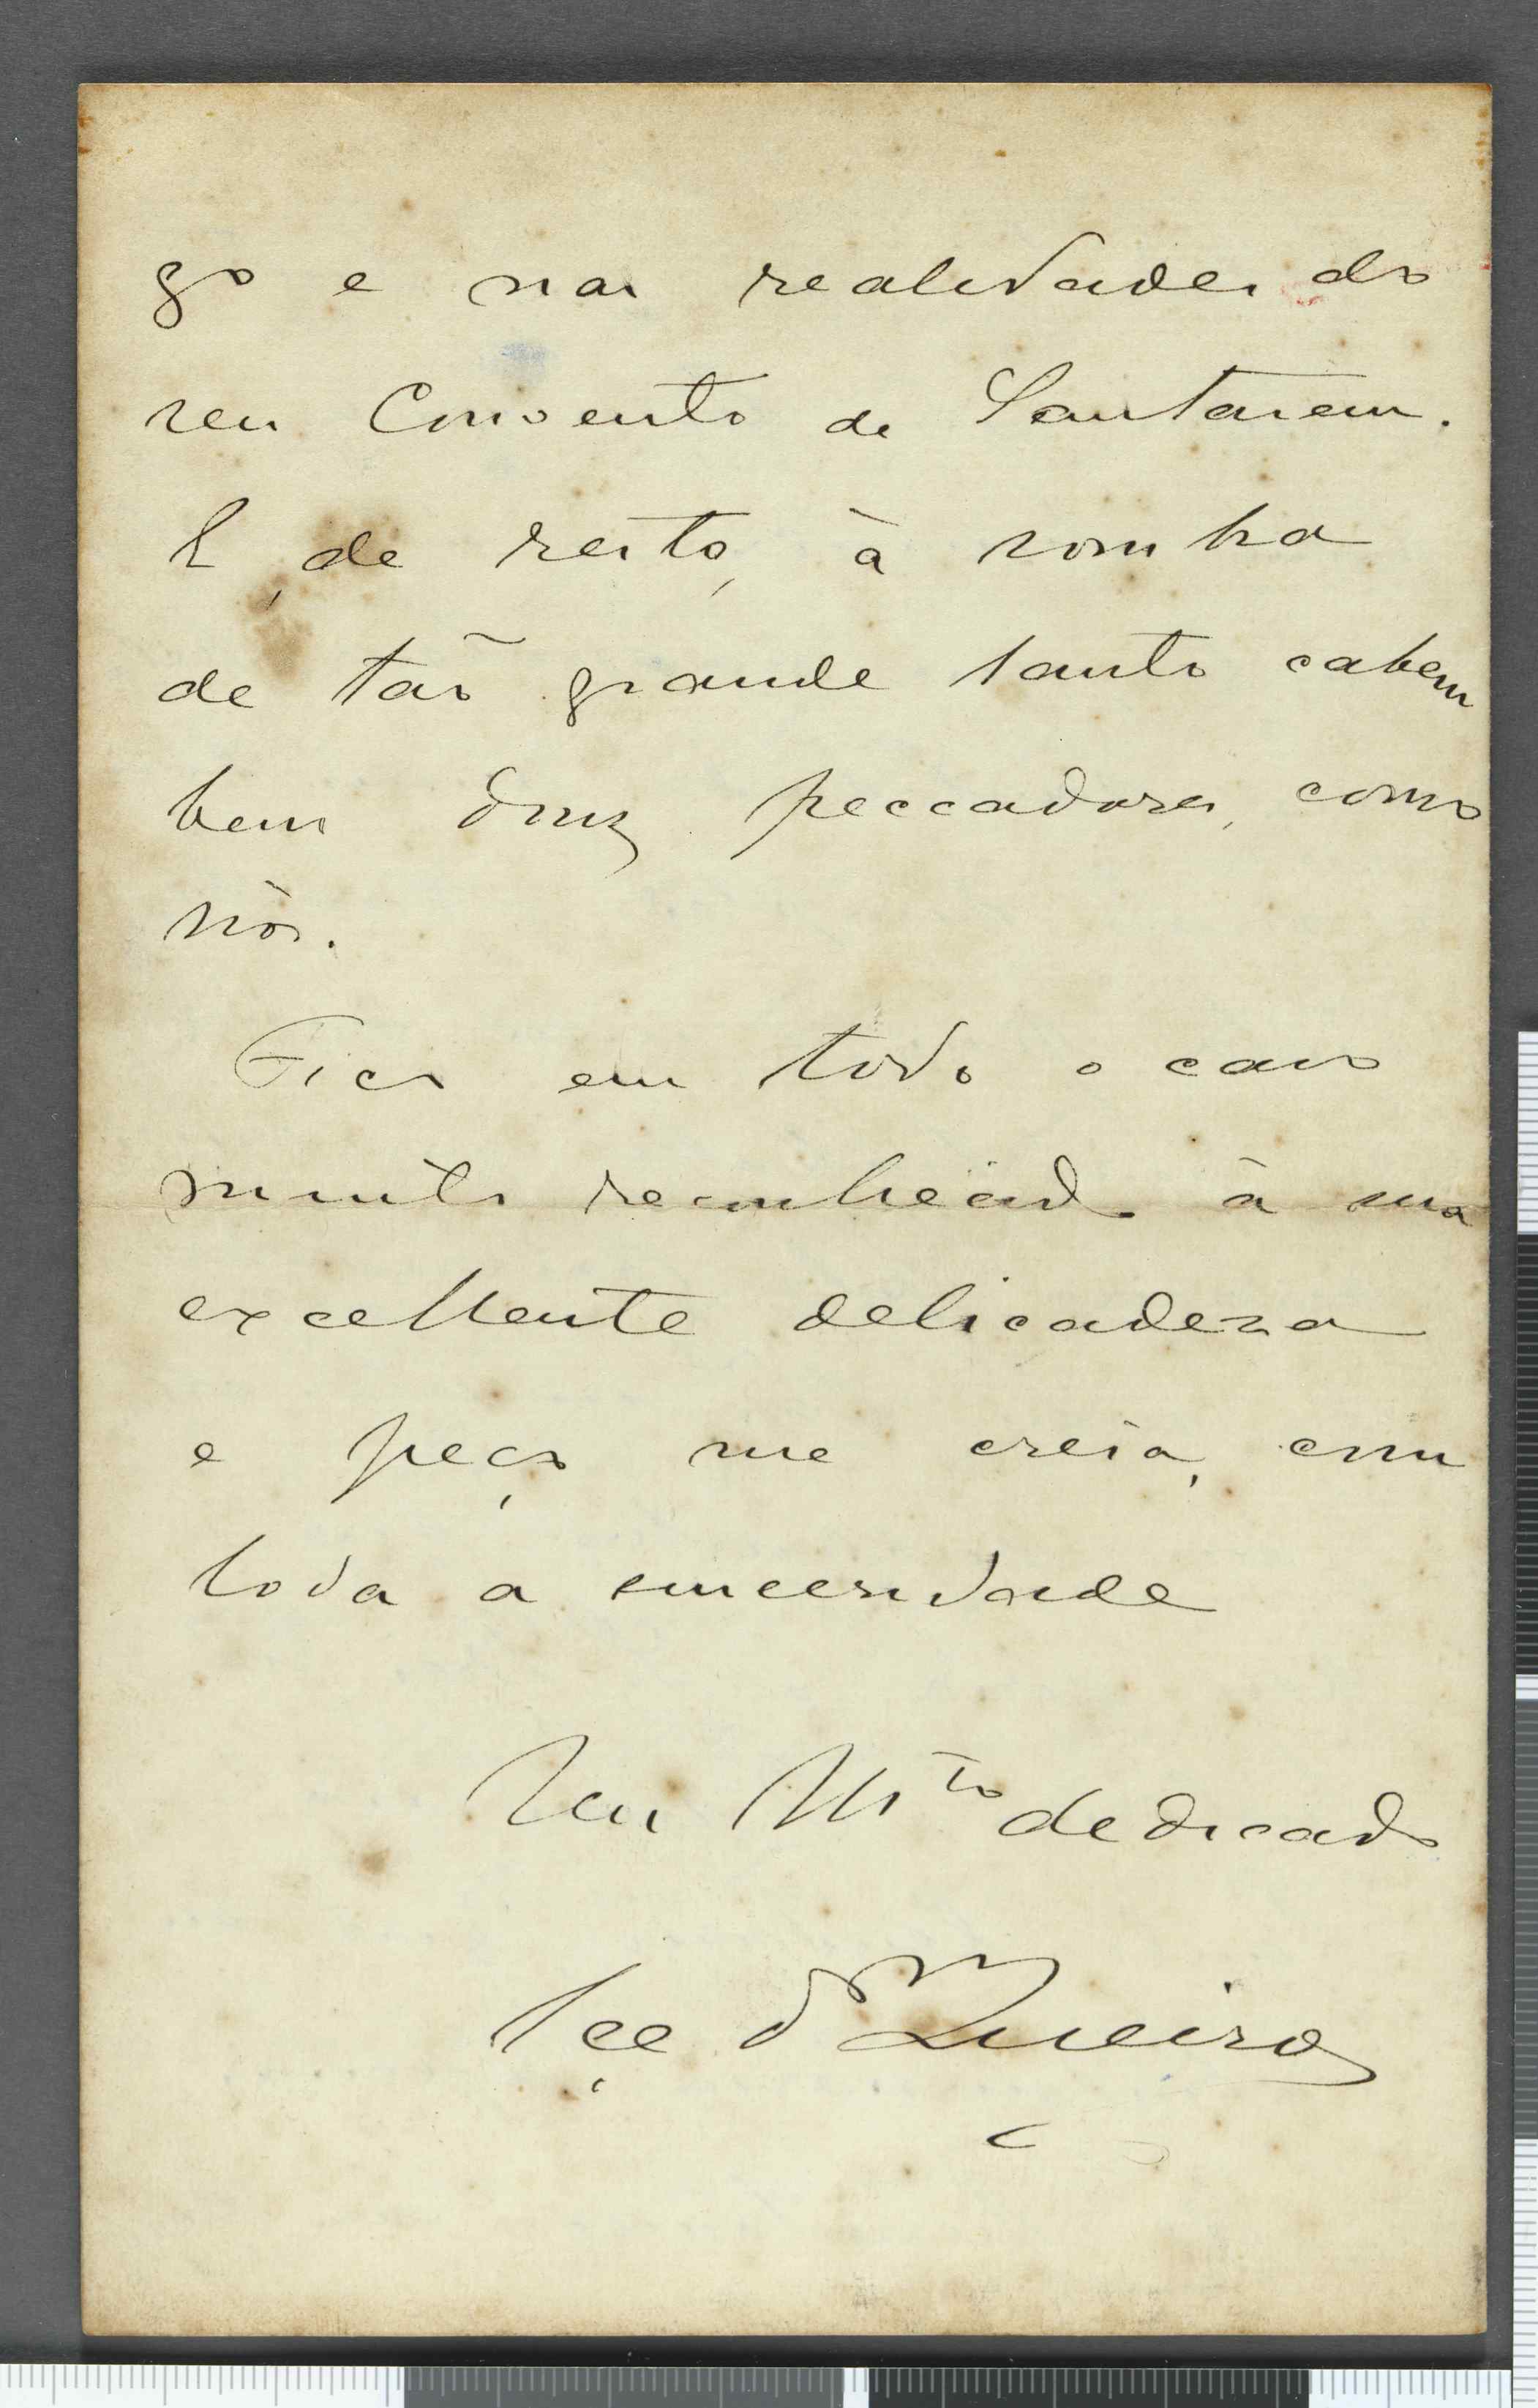 go e nas realidades do
seu Convento de Santarem.
E, de resto, à sombra
de tão grande santo cabem
bem dous peccadores, como
nós.
Fico em todo o caso
muito reconhecido à sua
excellente delicadeza
e peço me creia, com
toda a sinceridade
Seu M.to dedicado
Eça de Queiroz